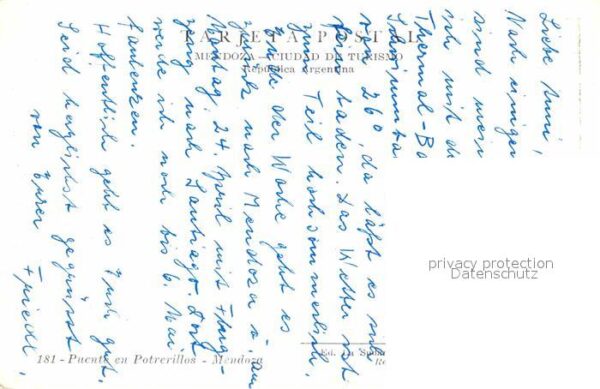 TARJETA POSTAL
MENDOZA - CIUDAD DE TURISMO
República Argentina
Liebe Anni,
Nach einigen
sind wir
ich mit d
Thermal-Ba
von 26°, da läßt es sich
fein baden. Das Wetter ist
zum Teil hochsommerlich.
Ende der Woche geht es
zurück nach Mendoza u. am
Montag, 24. April mit Flug-
zeug nach Santiago. Dort
werde ich noch bis 6. Mai
Hoffentlich geht es Euch gut.
Seid herzlichst gegrüsst
von Eurer
Friedl,
privacy protection
Datenschutz
181 - Puente en Potrerillos - Mendoza
Ed.